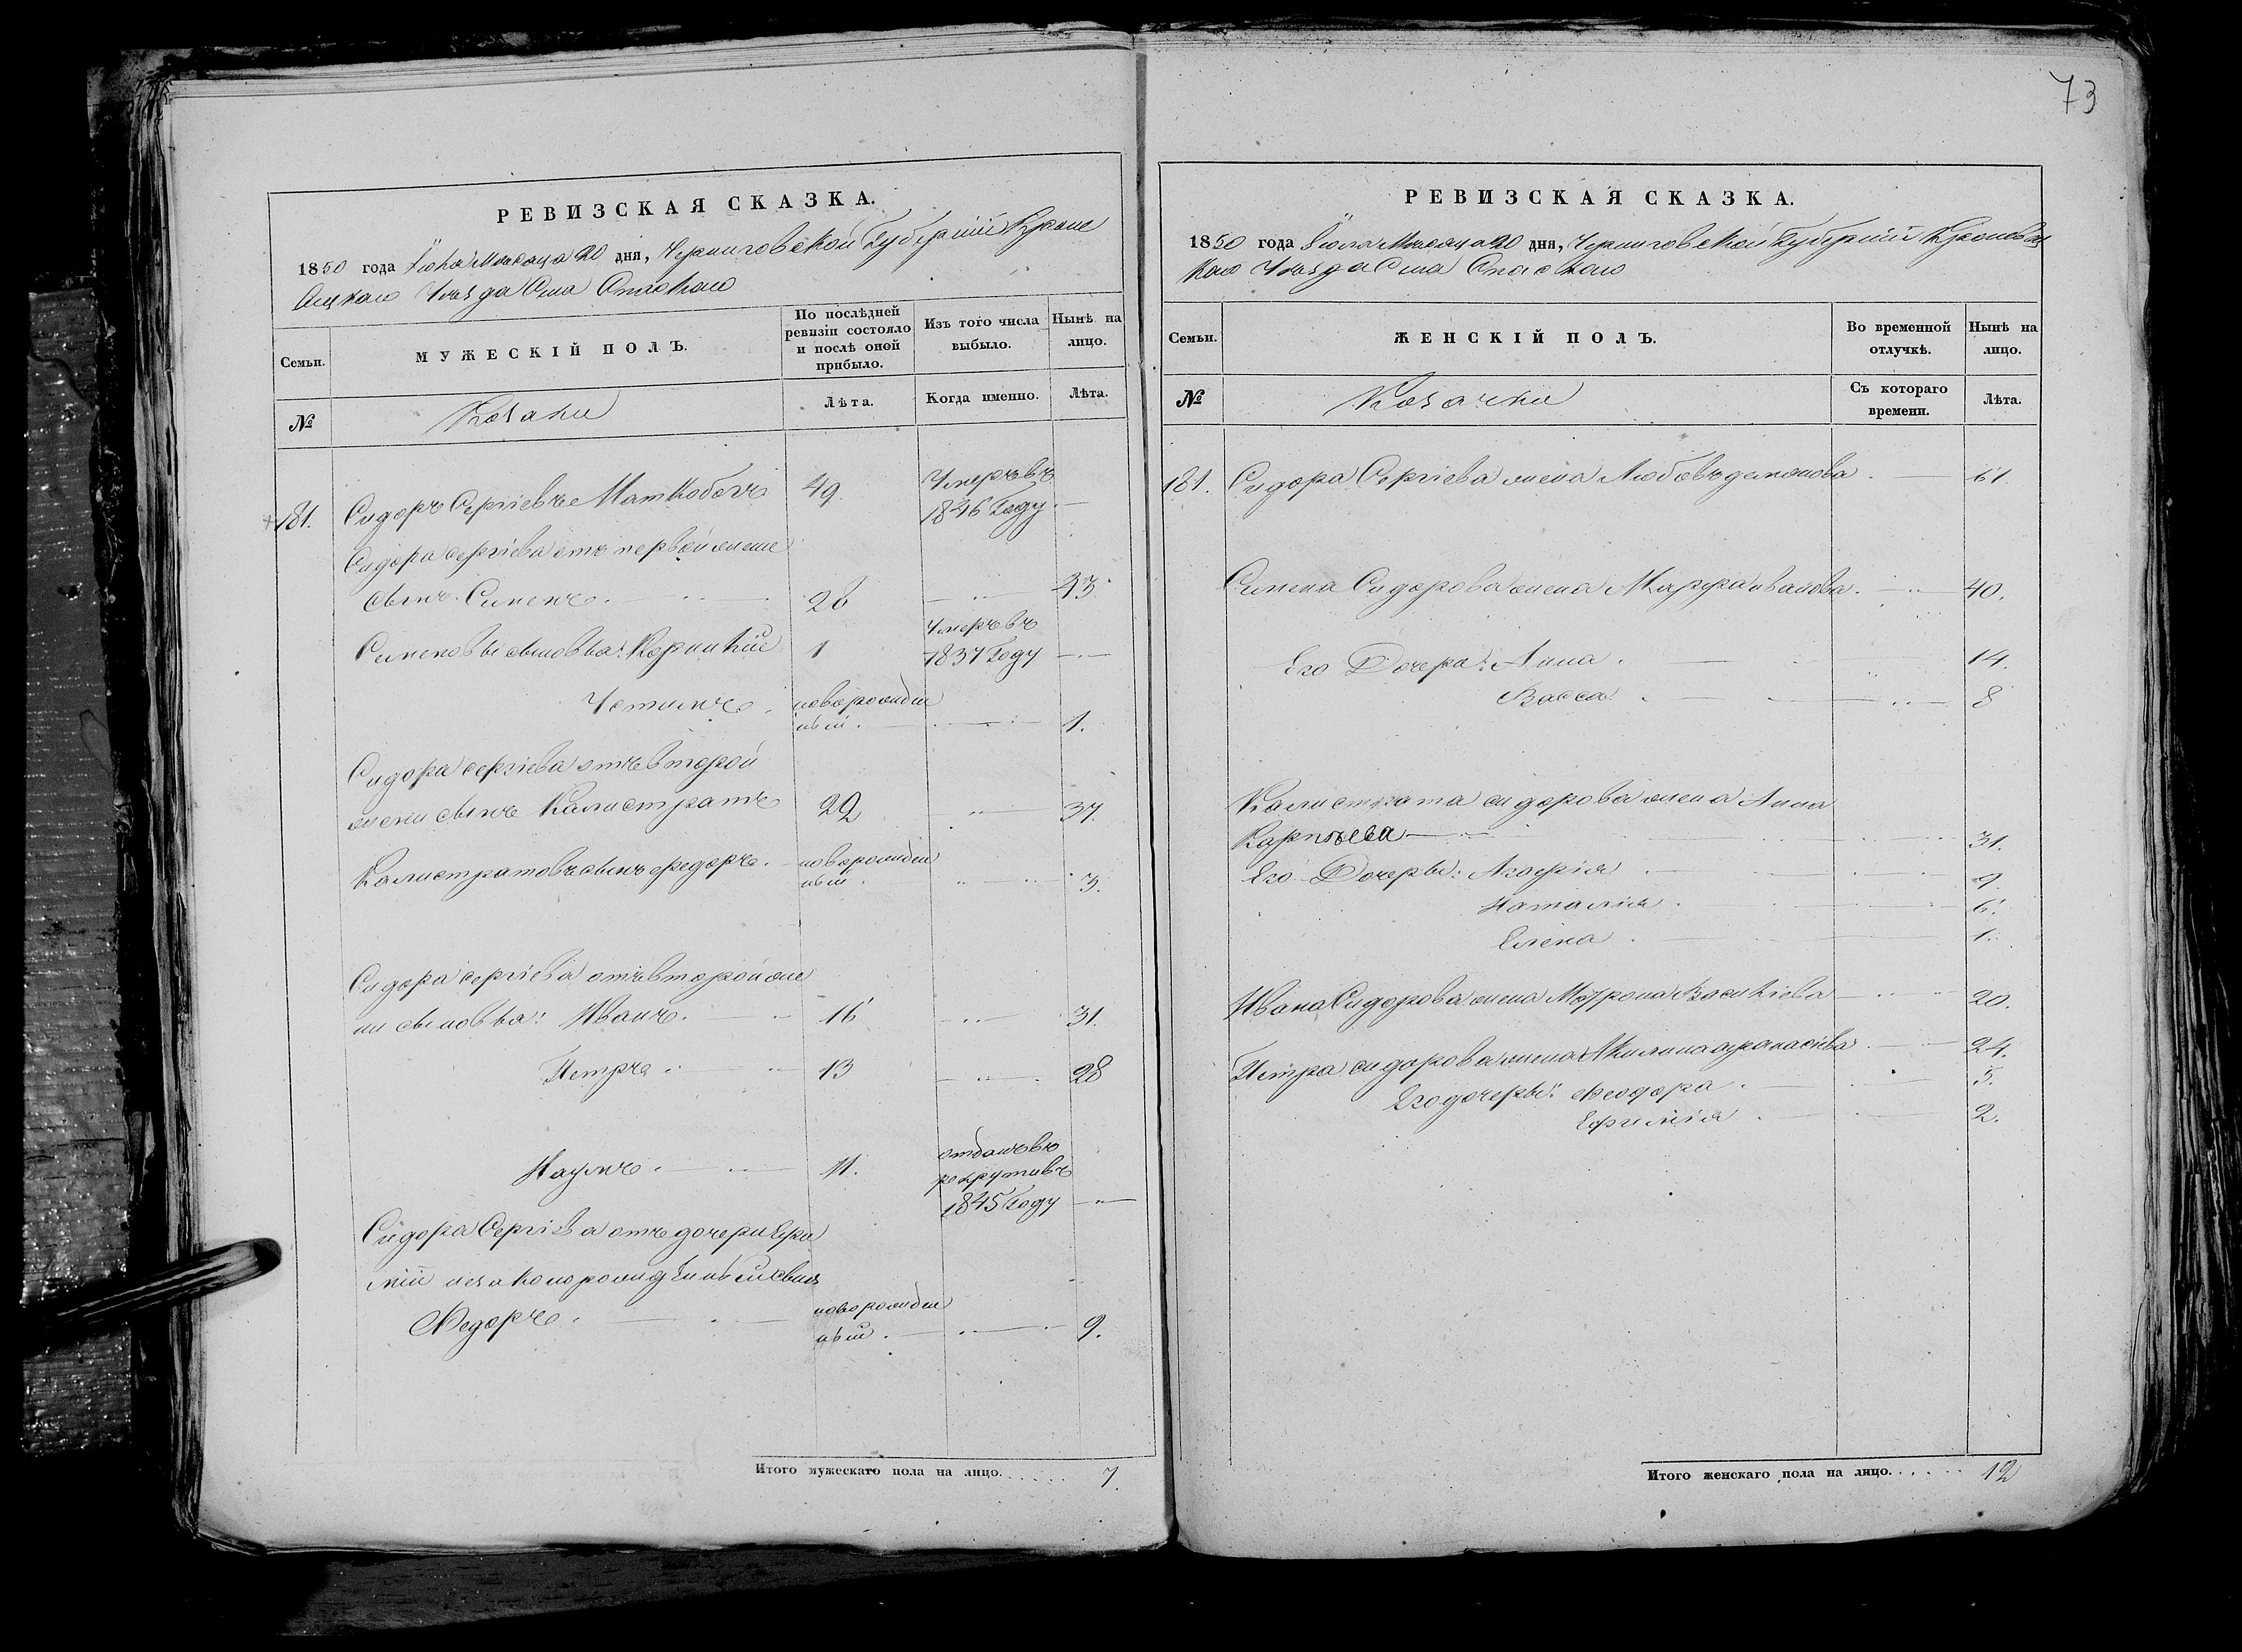 73
РЕВИЗСКАЯ СКАЗКА.
1850 года Іюля Месяца 20 дня, Черниговской Губерніи Кроле
вецкаго Уезда Села Спаскаго
Семьи.
МУЖЕСКІЙ ПОЛЪ.
По послѣдней ревизіи состояло и послѣ оной прибыло.
Изъ того числа выбыло.
Нынѣ на лицо.
№
Козаки
Лѣта.
Когда именно.
Лѣта.
181. Сидоръ Сергіевъ 49. Умеръ въ
1846 Году. —
Сидора сергіева отъ первой жены
сынъ Сименъ 26 — 43.
Сименовы сыновья: 1 Умеръ въ
1837 Году —
Устимъ новорожден
ный. — 1.
Сидора сергіева отъ второй
жены сынъ Калистратъ 22 — 37.
Калистратовъ сынъ федоръ. новорожден
ный. — 3.
Сидора сергіева отъ второй же
ны сыновья: Иванъ. 16 — 31.
Петръ 13 — 28
Наумъ 11. отданъ въ
рекруты въ
1845 Году —
Сидора Сергіева отъ дочери Ефи
міи незаконорожденный сынъ
Федоръ. новорожден
ный. — 9.
Итого мужескаго пола на лицо. 7.
РЕВИЗСКАЯ СКАЗКА.
1850 года Іюля Месяца 20 дня, Черниговской Губерніи Кролевец
каго Уезда Села Спаскаго
Семьи.
ЖЕНСКІЙ ПОЛЪ.
Во временной отлучкѣ.
Нынѣ на лицо.
№
Козачки
Съ котораго времени.
Лѣта.
181. Сидора Сергіева жена Любовъ демянова. — 61.
Симена Сидорова жена Марфа иванова. — 40.
Его Дочера: Анна. — 14.
Васса. — 8
Калистрата сидорова жена Анна
Карпіева — 31.
Его Дочеры: Агафія — 9.
Наталія. — 6.
Елена. — 1.
Ивана Сидорова жена Василіева — 20.
Петра сидорова жена Акилина афанасіева. — 24.
Его дочеры: Феодора. — 5.
Ефимія. — 2.
Итого женскаго пола на лицо. 12